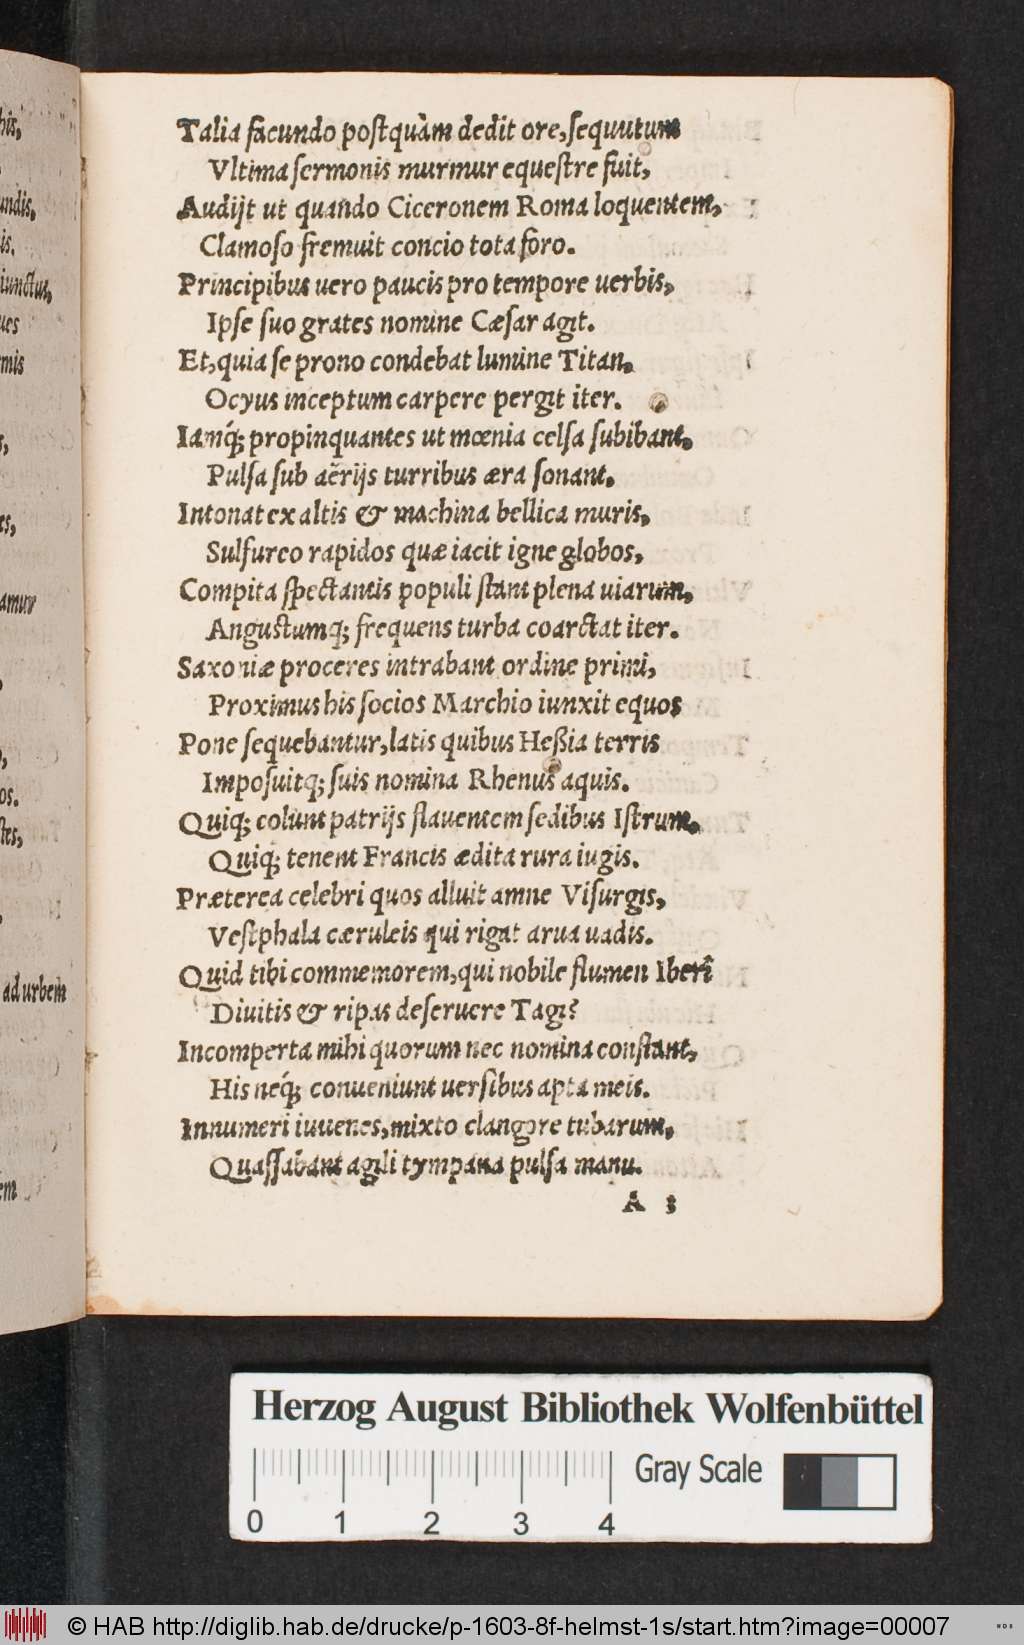 his,
undis,
is.
iunctus,
ues
mis
s,
es,
amur
os.
stes,
ad urbem
em
Talia facundo postquàm dedit ore, sequutum
Vltima sermonis murmur equestre fuit,
Audijt ut quando Ciceronem Roma loquentem,
Clamoso fremuit concio tota foro.
Principibus uero paucis pro tempore uerbis,
Ipse suo grates nomine Cæsar agit.
Et, quia se prono condebat lumine Titan,
Ocyus inceptum carpere pergit iter.
Iamq́; propinquantes ut mœnia celsa subibant,
Pulsa sub aërijs turribus æra sonant.
Intonat ex altis & machina bellica muris,
Sulfureo rapidos quæ iacit igne globos,
Compita spectantis populi stant plena uiarum,
Angustumq; frequens turba coarctat iter.
Saxoniæ proceres intrabant ordine primi,
Proximus his socios Marchio iunxit equos
Pone sequebantur, latis quibus Heßia terris
Imposuitq; suis nomina Rhenus aquis.
Quiq; colunt patrijs flauentem sedibus Istrum,
Quiq; tenent Francis ædita rura iugis.
Præterea celebri quos alluit amne Visurgis,
Vestphala cæruleis qui rigat arua uadis.
Quid tibi commemorem, qui nobile flumen Iberi
Diuitis & ripas deseruere Tagi?
Incomperta mihi quorum nec nomina constant,
His neq́; conueniunt uersibus apta meis.
Innumeri iuuenes, mixto clangore tubarum,
Quassabant agili tympana pulsa manu.
A 3
Herzog August Bibliothek Wolfenbüttel
Gray Scale
0 1 2 3 4
© HAB http://diglib.hab.de/drucke/p-1603-8f-helmst-1s/start.htm?image=00007